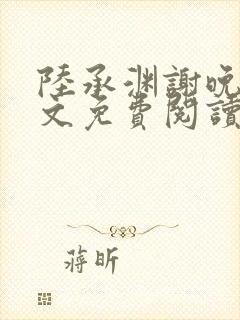 陸承渊謝晚
文免費閱讀
蒋昕